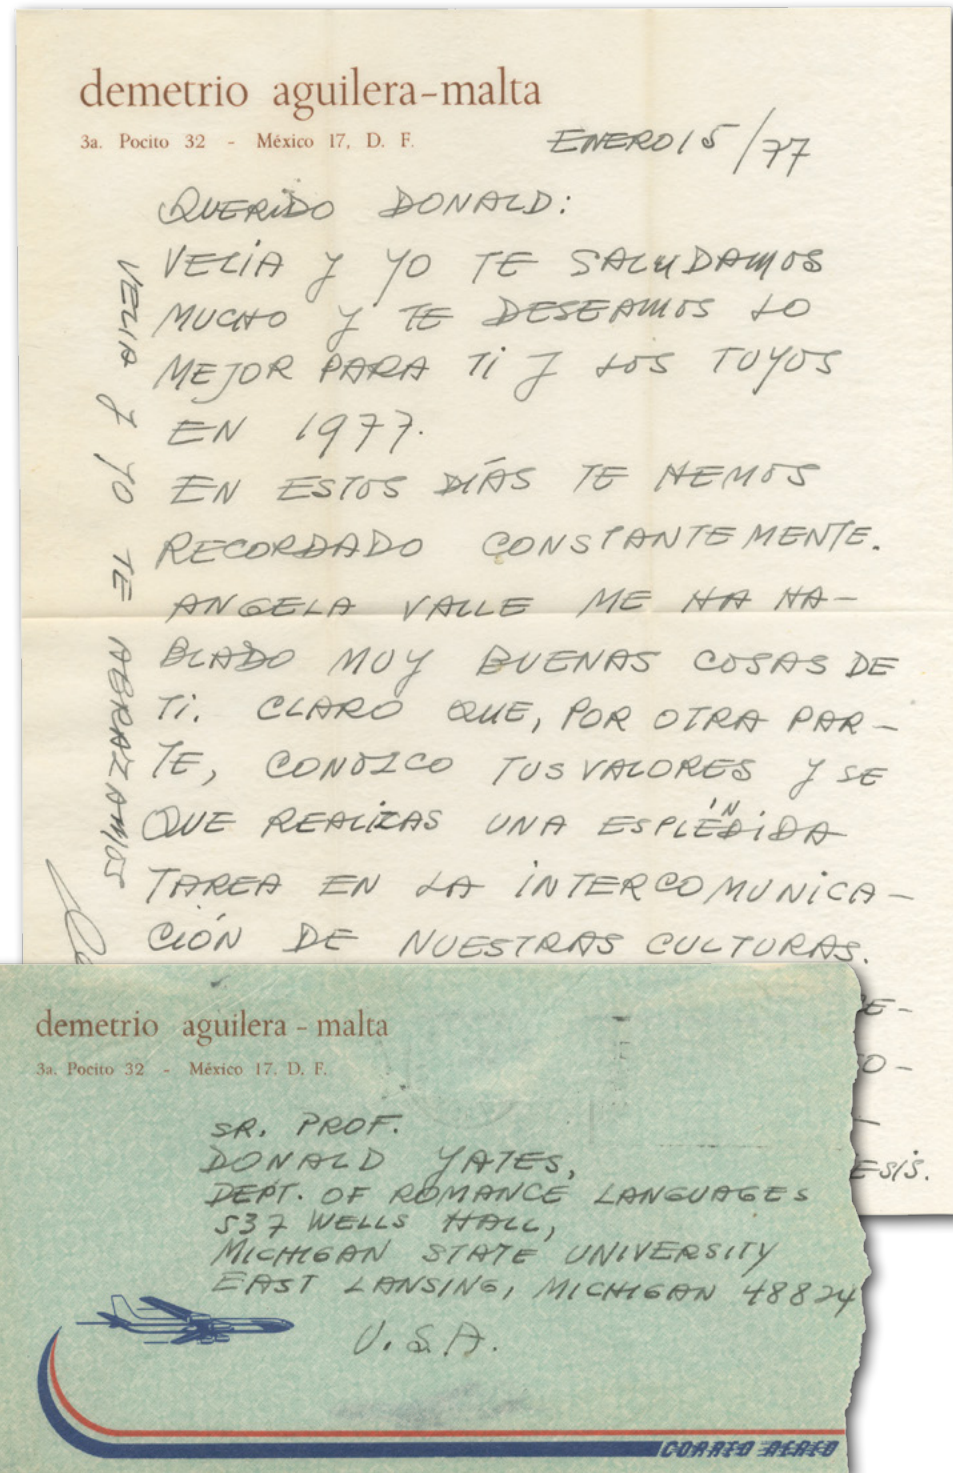 demetrio aguilera-malta
3a. Pocito 32 - México 17, D. F.
ENERO 15/77
QUERIDO DONALD:
VELIA Y YO TE SALUDAMOS
MUCHO Y TE DESEAMOS LO
MEJOR PARA TI Y LOS TUYOS
EN 1977.
EN ESTOS DÍAS TE HEMOS
RECORDADO CONSTANTEMENTE.
ANGELA VALLE ME HA HA-
BLADO MUY BUENAS COSAS DE
TI. CLARO QUE, POR OTRA PAR-
TE, CONOZCO TUS VALORES Y SE
QUE REALIZAS UNA ESPLÉNDIDA
TAREA EN LA INTERCOMUNICA-
CIÓN DE NUESTRAS CULTURAS.
E-
O-
-
ESIS.
VELIA Y YO TE ABRAZAMOS
demetrio aguilera-malta
3a. Pocito 32 - México 17, D. F.
SR. PROF.
DONALD YATES,
DEPT. OF ROMANCE LANGUAGES
537 WELLS HALL,
MICHIGAN STATE UNIVERSITY
EAST LANSING, MICHIGAN 48824
U.S.A.
CORREO AEREO